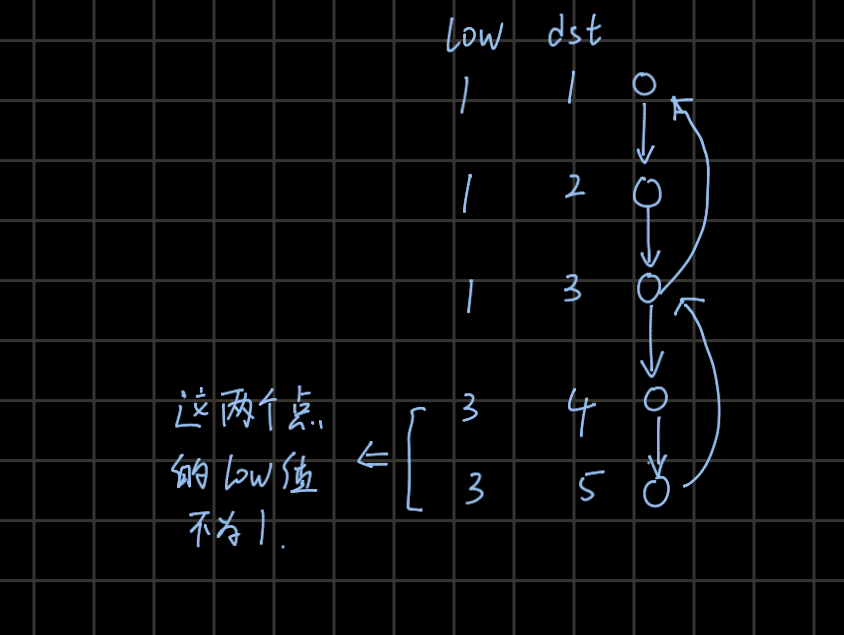 low dst
1 1
1 2
1 3
3 4
3 5
这两个点
的low值
不为1.